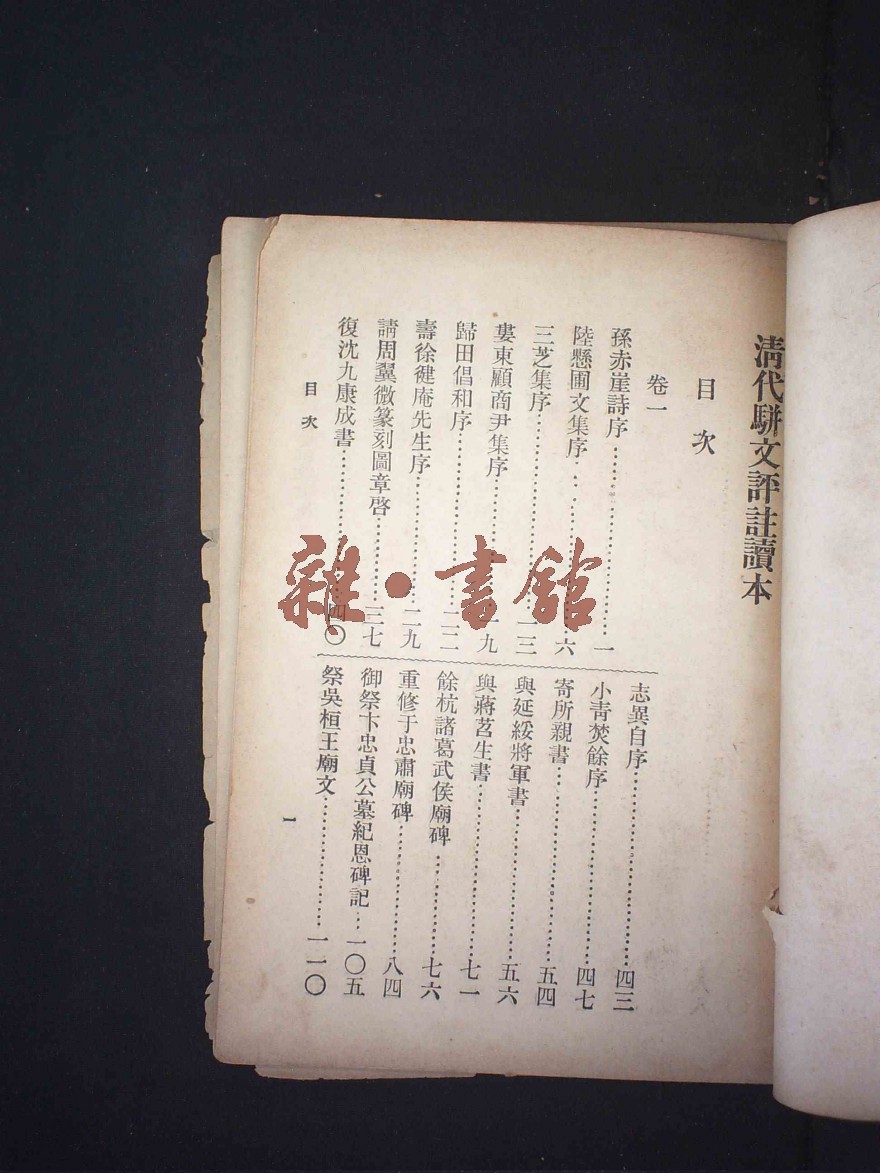 清代駢文評註讀本
目次
卷一
孫赤崖詩序……一
陸懸圃文集序……六
三芝集序……一三
婁東顧商尹集序……一九
歸田倡和序……二二
壽徐健庵先生序……二九
請周翼微篆刻圖章啓……三七
復沈九康成書……四〇
志異自序……四三
小青焚餘序……四七
寄所親書……五四
與延綏將軍書……五六
與蔣苕生書……七一
餘杭諸葛武侯廟碑……七六
重修于忠肅廟碑……八四
御祭卞忠貞公墓紀恩碑記…一〇五
祭吳桓王廟文……一一〇
目次
一
雜·書館